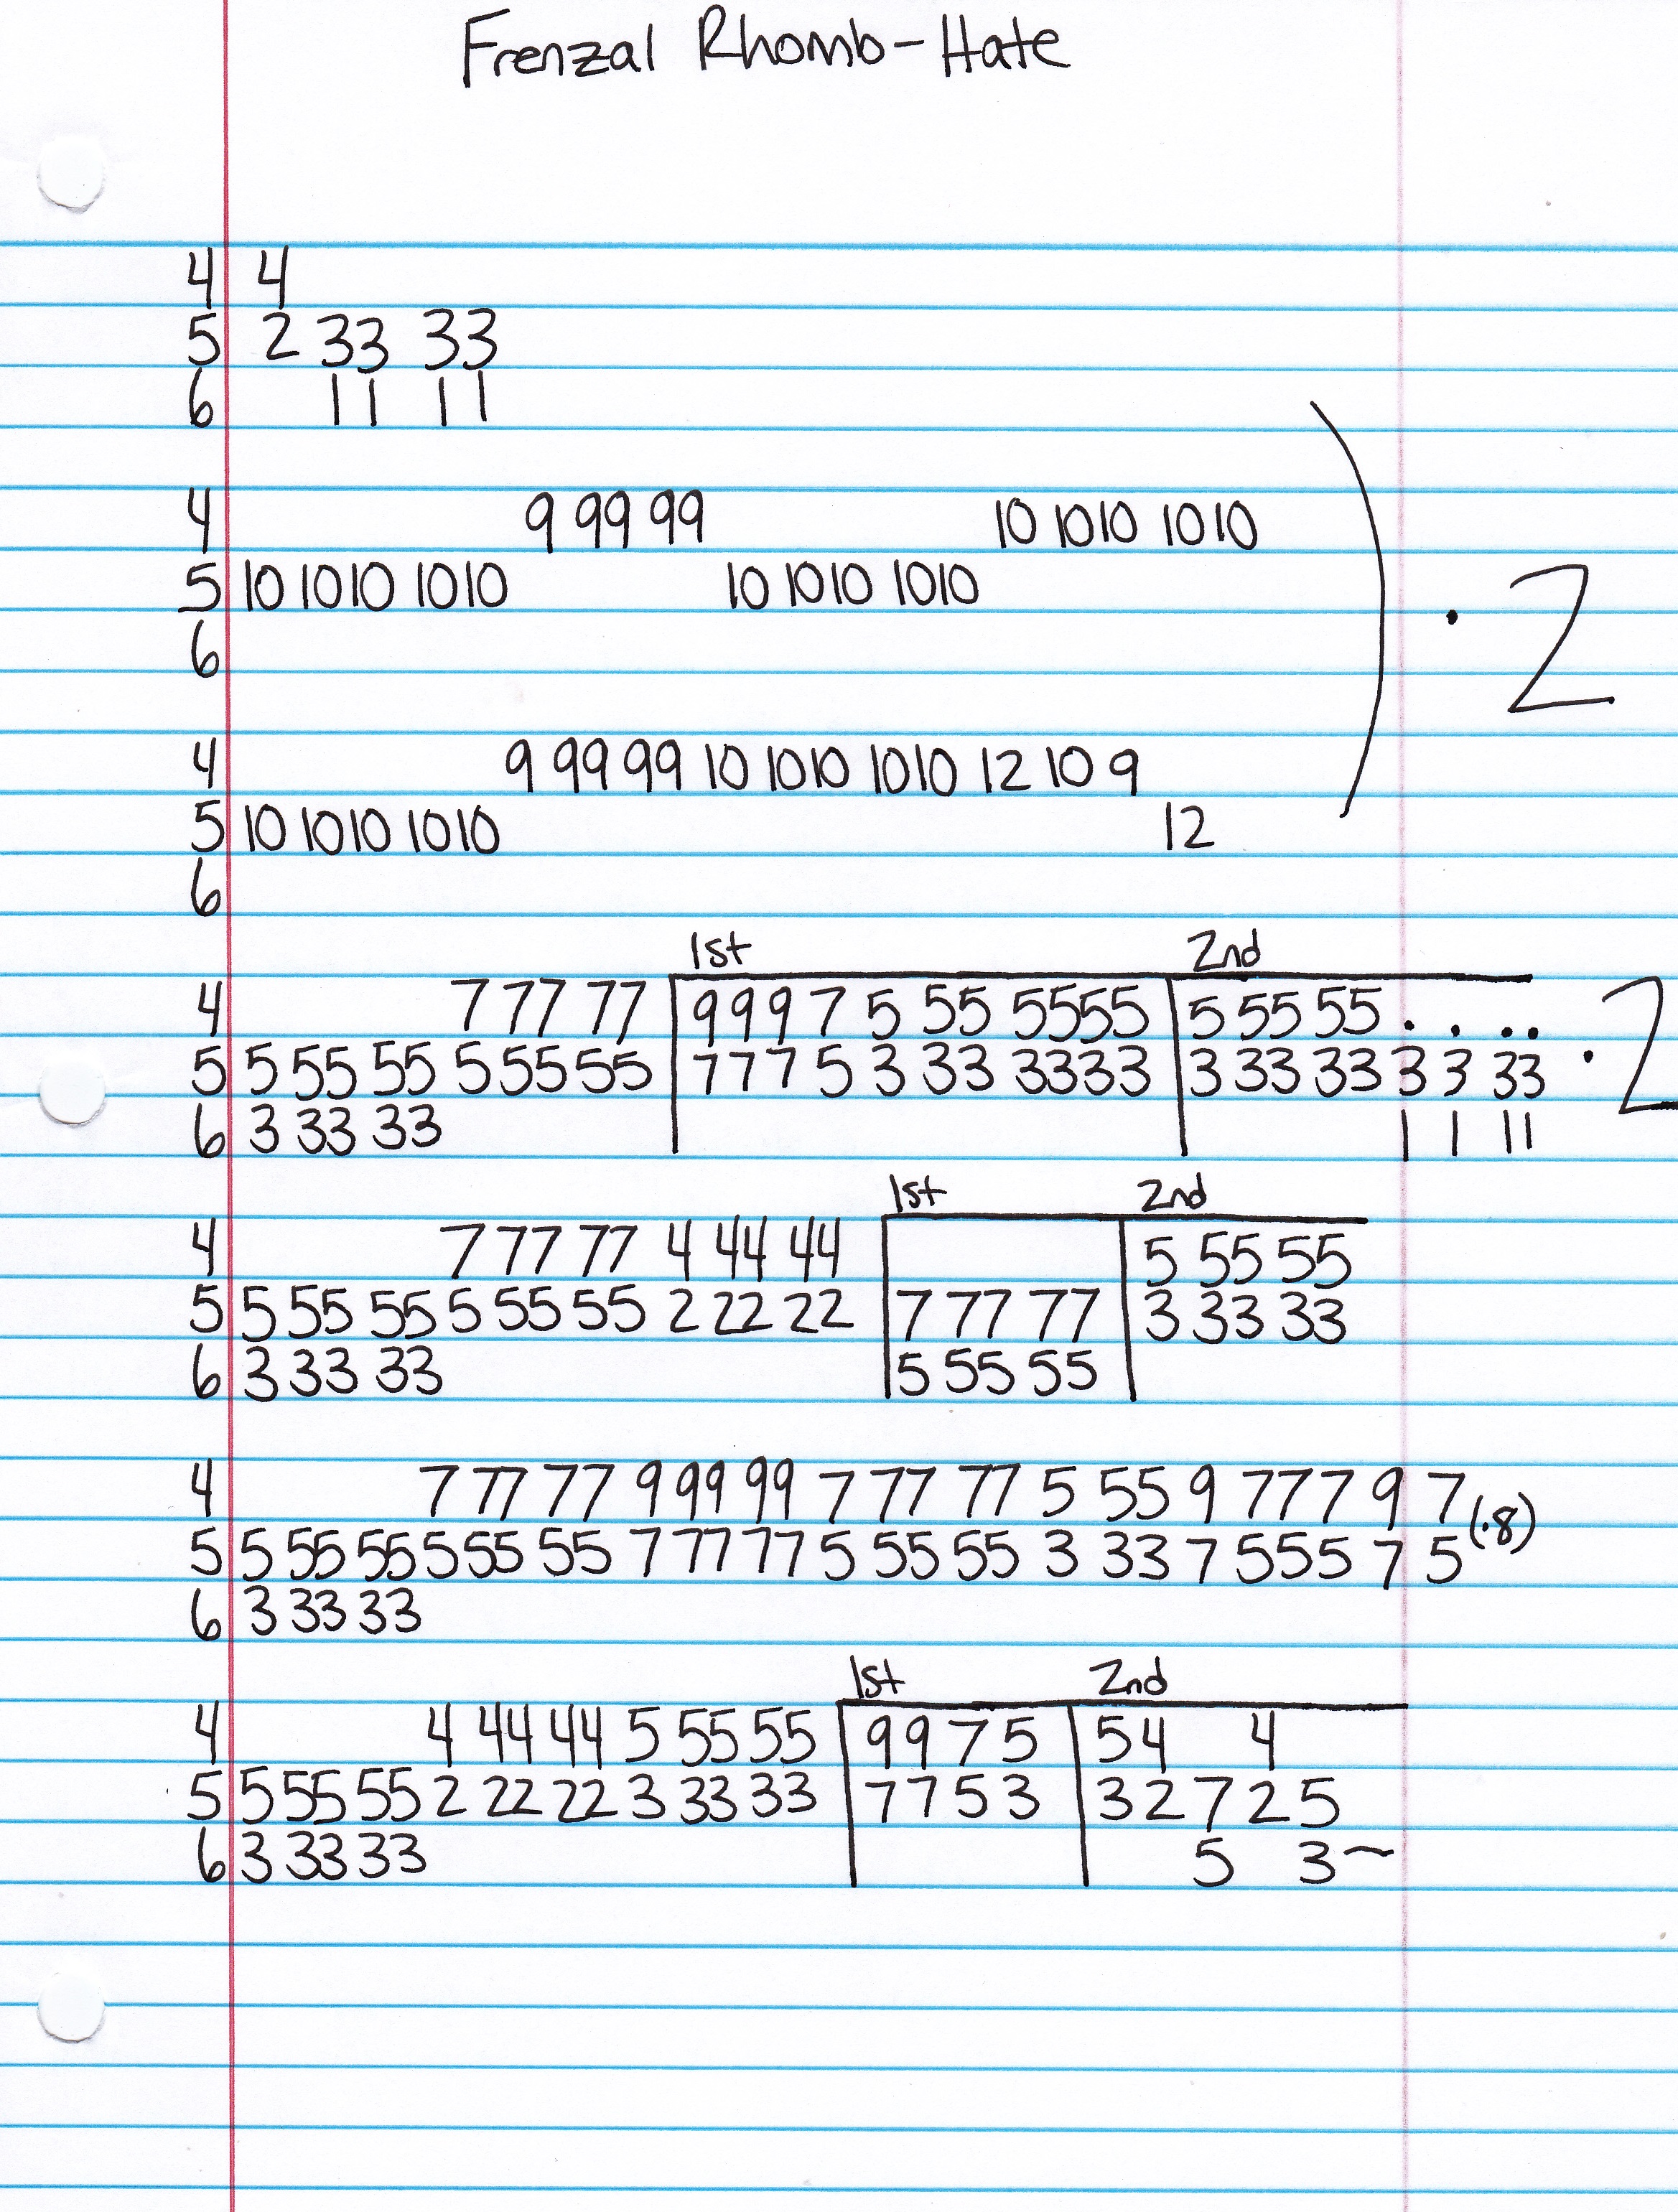 Frenzal Rhomb-Hate
4 4
5 2 33 33
6 11 11
4 9 99 99 10 1010 1010
5 10 1010 1010 10 1010 1010
6
· 2
4 9 99 99 10 1010 1010 12 10 9
5 10 1010 1010 12
6
1st 2nd
4 7 77 77 9 9 9 7 5 55 5555 5 55 55 . . ..
5 5 55 55 5 55 55 7 7 7 5 3 33 3333 3 33 33 3 3 33
6 3 33 33 1 1 11
· 2
1st 2nd
4 7 77 77 4 44 44 5 55 55
5 5 55 55 5 55 55 2 22 22 7 77 77 3 33 33
6 3 33 33 5 55 55
4 7 77 77 9 99 99 7 77 77 5 55 9 777 9 7 (·8)
5 5 55 55 5 55 55 7 77 77 5 55 55 3 33 7 555 7 5
6 3 33 33
1st 2nd
4 4 44 44 5 55 55 9 9 7 5 5 4 4
5 5 55 55 2 22 22 3 33 33 7 7 5 3 3 2 7 2 5
6 3 33 33 5 3~